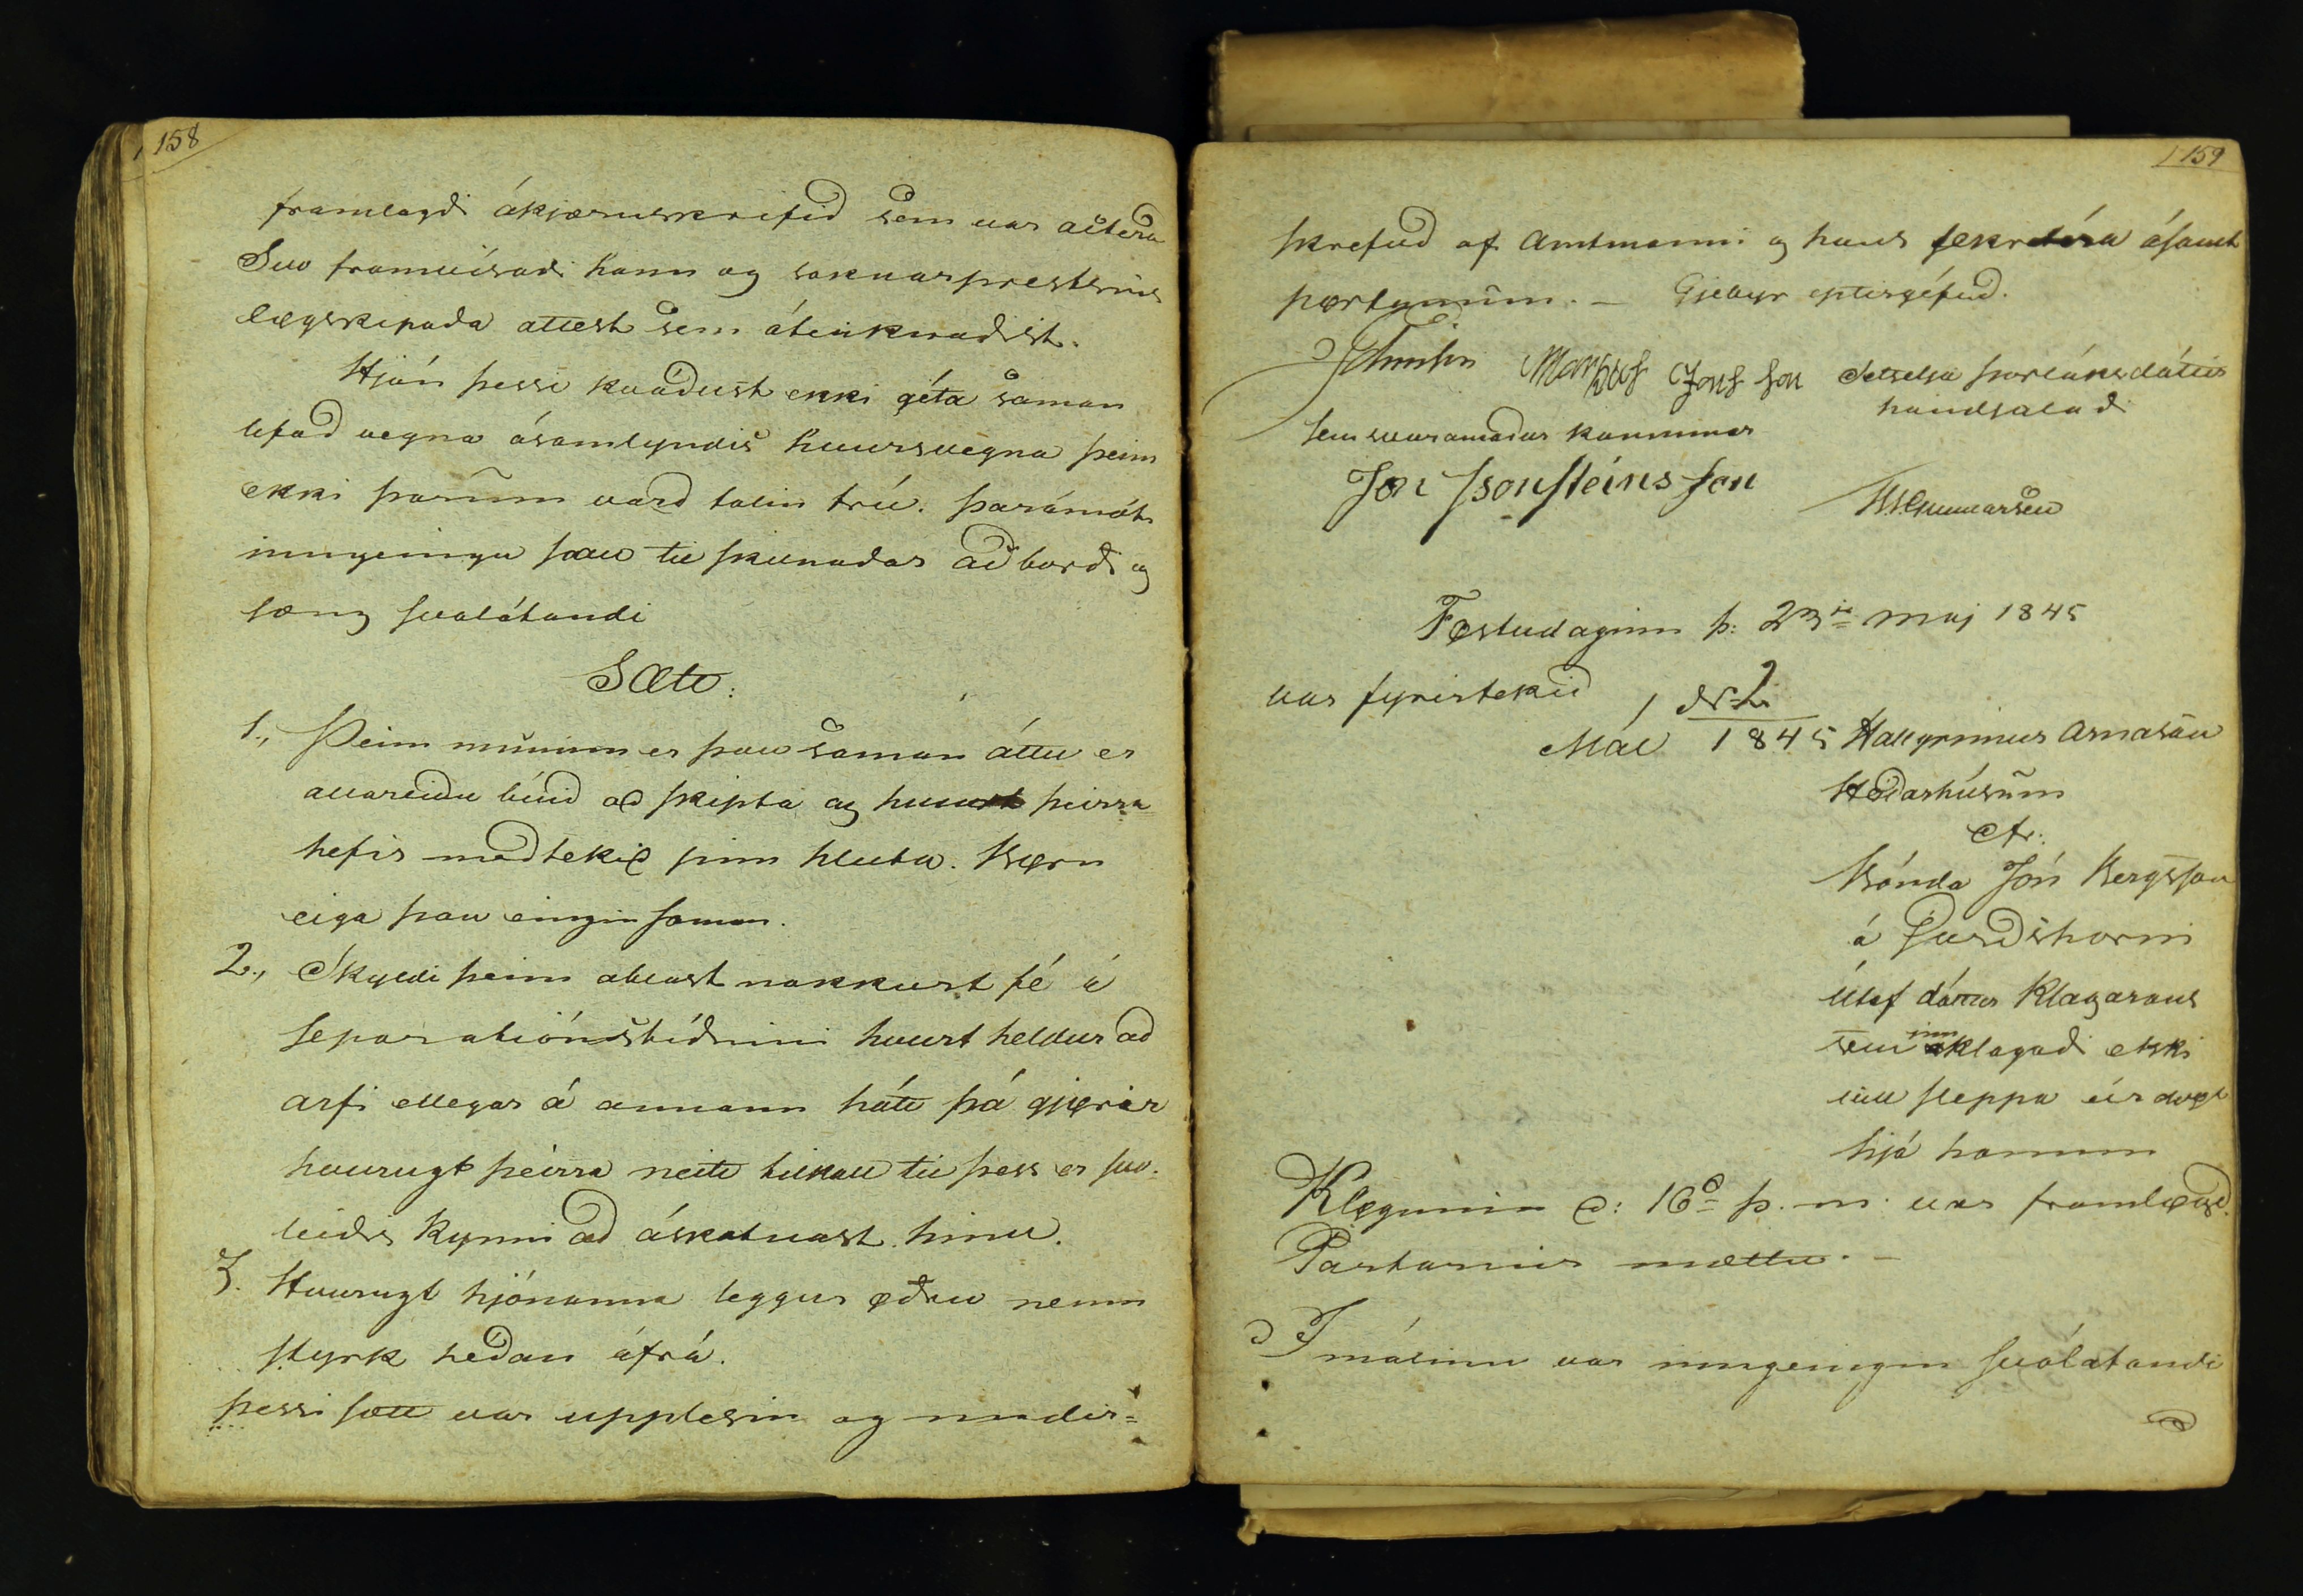 158
framlagði ákjæruskrifið sem var acterað
Svo framvísaði hann og soknarprestsins
lægskipaða attest sem áteiknaðist.
Hjón þessi kváðust ekki géta saman
lifað vegna ósamlyndis hvursvegna þeim
ekki þarum varð talin trú. Þarámót
inngeingu þau til skilnaðar að borði og
sæng svolátandi
Sætt:
1., Þeim munum er þau saman áttu er
allareiðu búið að skipta og hvurt þeirra
hefir meðtekið sinn hluta. Børn
eiga þau eingin saman.
2., Skyldi þeim áhlast nokkurt fé á
separationstíðinni hvurt heldur að
arfi ellegar á annann hátt þá gjørir
hvurugt þeirra neitt tilkall til þess er svo-
leiðis kynni að áskotnast hinu.
3. Hvurugt hjónanna leggur øðru neinn
styrk héðan áfrá.
Þessi sætt var upplesin og undir=
159
skrifuð af Amtmanni og hans sekretéra ásamt
pørtunum. — Gjebyr eptirgéfuð.
Johnsen Jons son Setselja Þorláksdóttir
handsalaði
sem svaramaður konunnar
Jón Þsonsteins son
Gunnarsen
Føstudaginn þ: 23ja maj 1845
var fyrirtekið
Mál No 2 1845 Hallgrímur Arnason
Heiðarhúsum
Ctr:
Bónda Jón Bergsson
á Gurðshorni
Útaf dóttur Klagarans
sem innklagaði ekki
vill sleppa úr vist
hjá honum
Kløgunin d: 16d þ. m. var framløgð.
Partarnir mættu. —
I málinu var inngeingin svolátandi